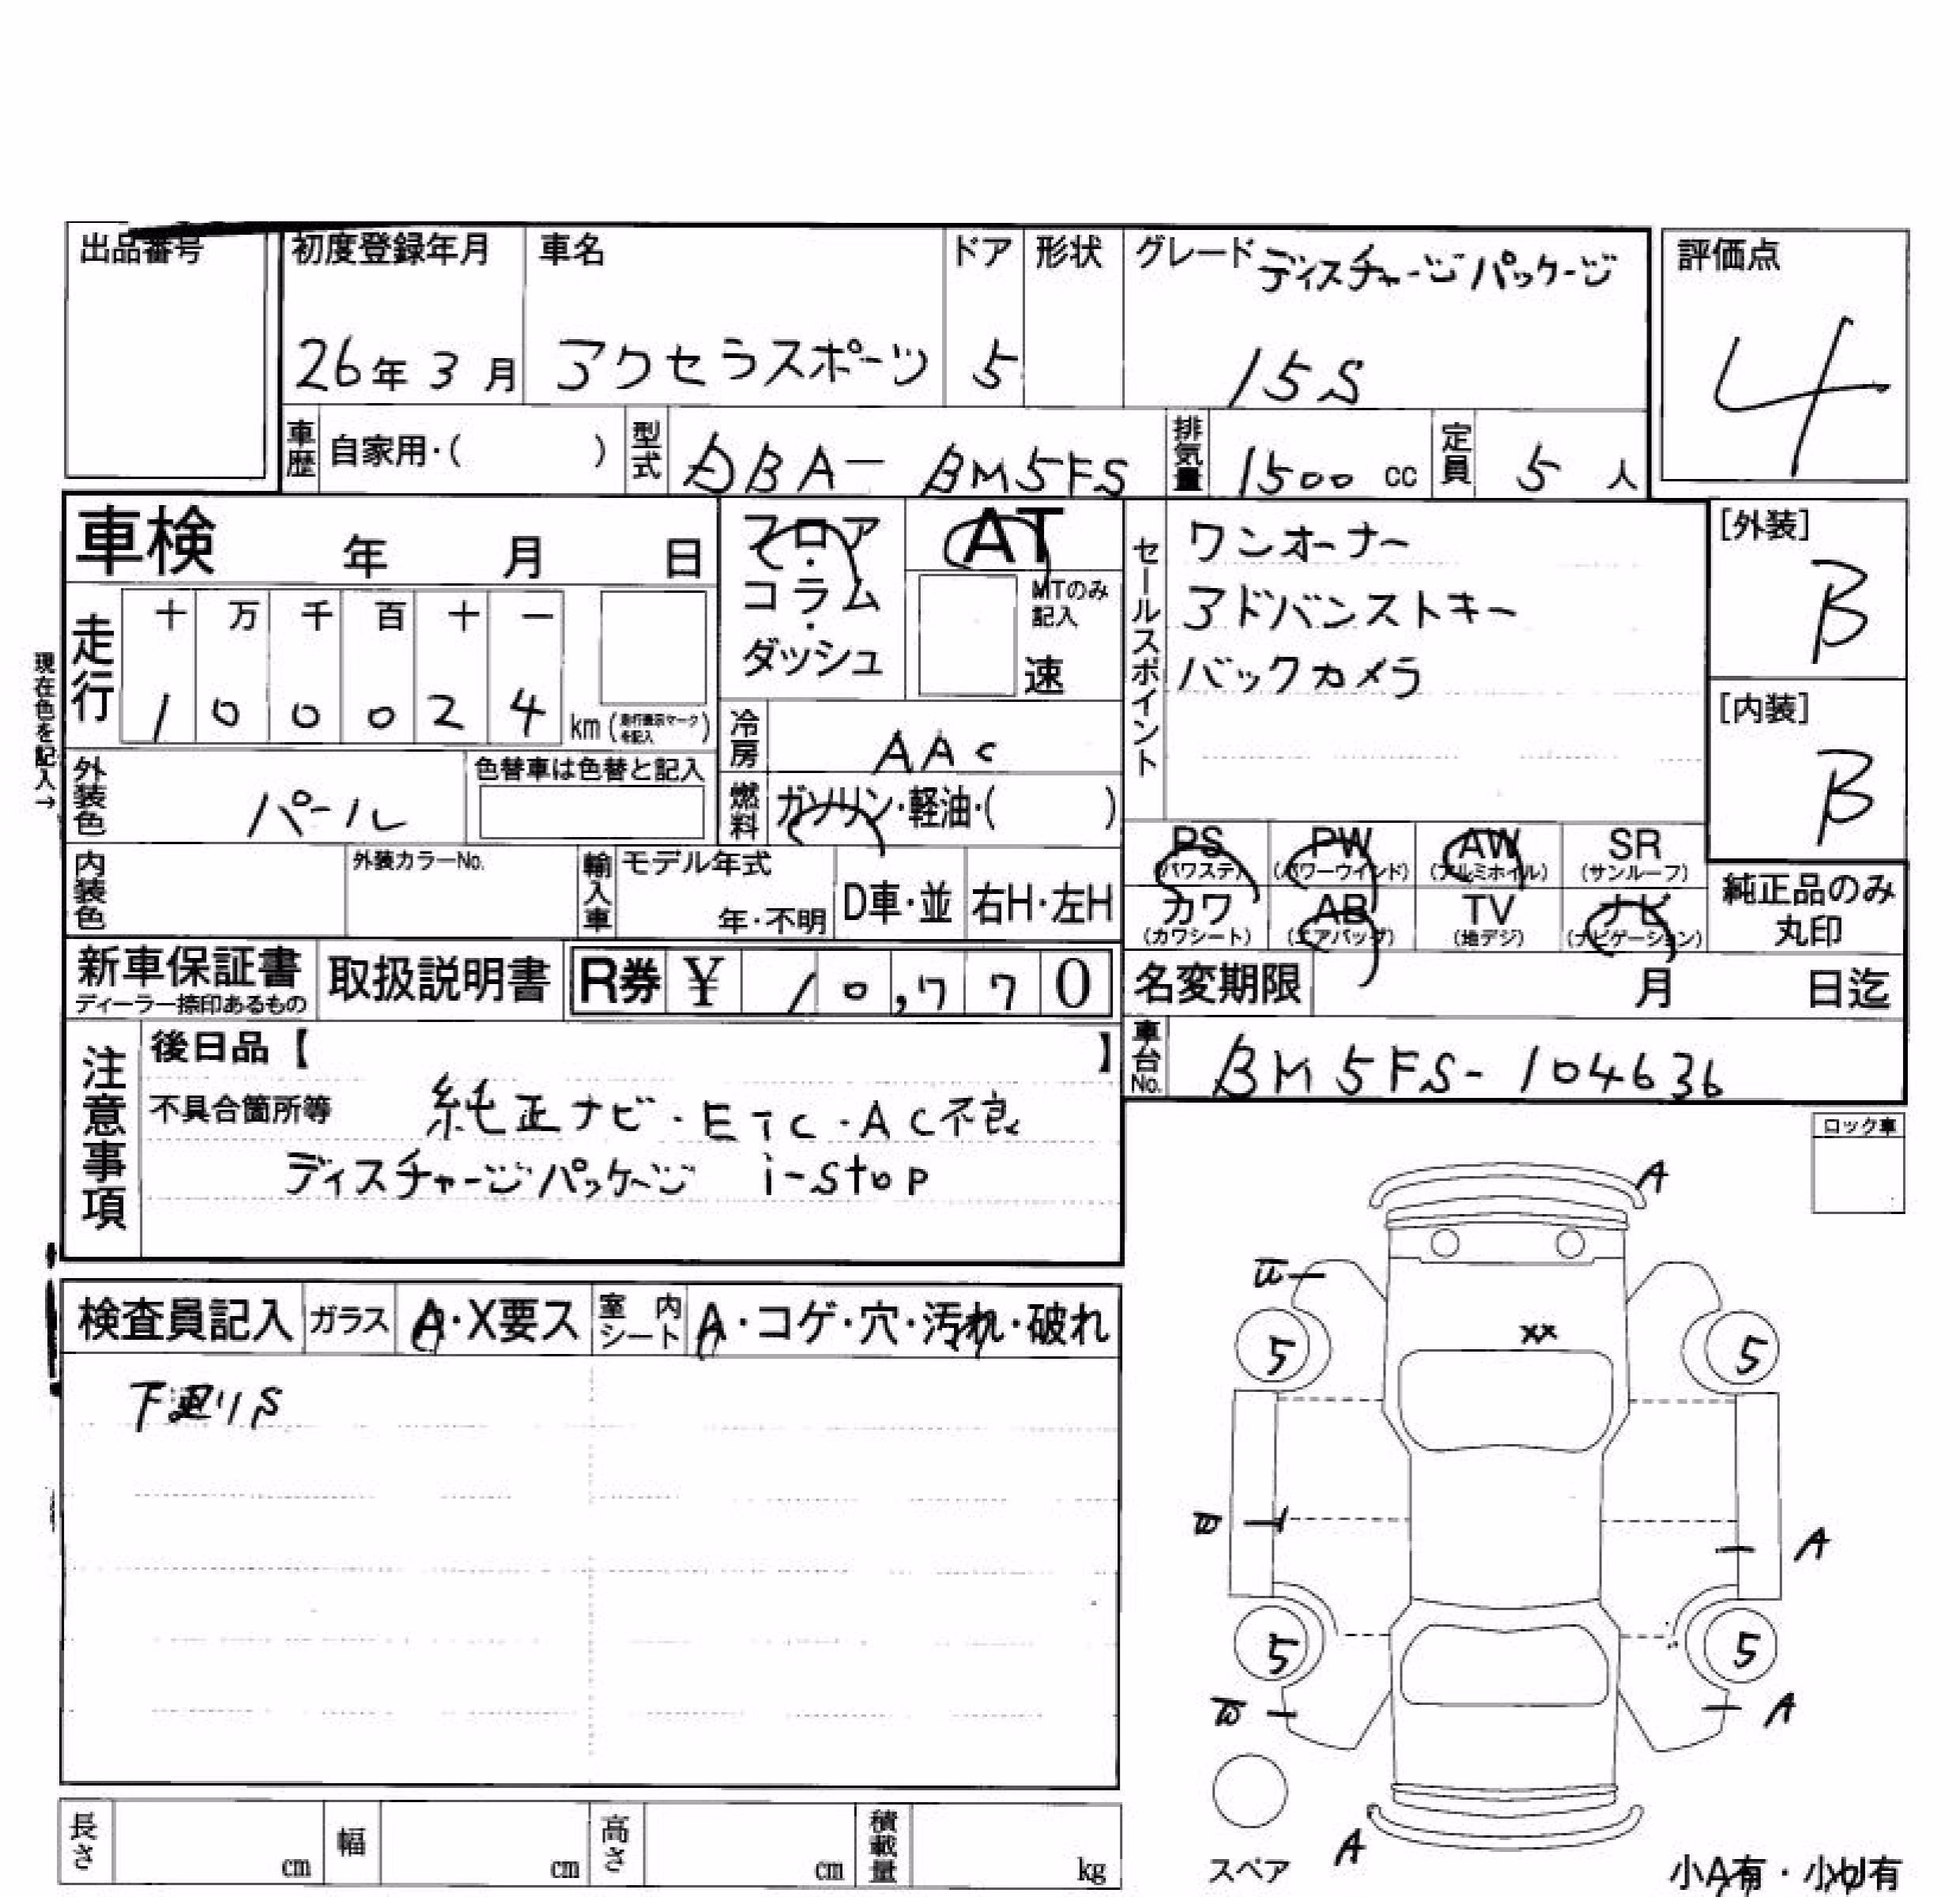 出品番号
初度登録年月 車名 ドア 形状 グレード ディスチャージパッケージ 評価点
26年 3月 アクセラスポーツ 5 15S 4
車歴 自家用・( ) 型式 DBA-BM5FS 排気量 1500 cc 定員 5 人
車検 年 月 日
フロア・コラム・ダッシュ
AT
MTのみ記入
速
セールスポイント
ワンオーナー
アドバンストキー
バックカメラ
[外装]
B
[内装]
B
走行 十 万 千 百 十 一
1 0 0 0 2 4 km (走行表示マークを記入)
現在色を記入→
冷房 AAC
外装色 パール 色替車は色替と記入
燃料 ガソリン・軽油・( )
PS (パワステ) PW (パワーウインド) AW (アルミホイル) SR (サンルーフ)
カワ (カワシート) AB (エアバッグ) TV (地デジ) ナビ (ナビゲーション)
純正品のみ
丸印
内装色 外装カラーNo. 輸入車 モデル年式 年・不明 D車・並 右H・左H
新車保証書 ディーラー捺印あるもの 取扱説明書 R券 ¥ 10,770
名変期限 月 日迄
車台No. BM5FS-104636
注意事項
後日品【 】
不具合箇所等 純正ナビ・ETC・AC不良
ディスチャージパッケージ i-stop
ロック車
検査員記入 ガラス A・X要ス 室内シート A・コゲ・穴・汚れ・破れ
下廻りS
A
XX
5 5
A
5 5
A
A
スペア
小A有・小U有
長さ cm 幅 cm 高さ cm 積載量 kg